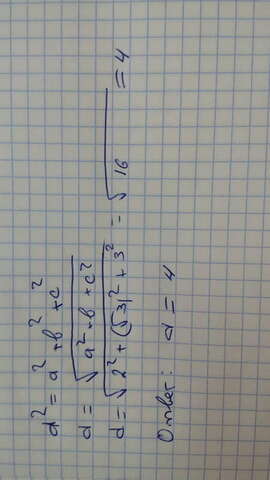 d² = a² + b² + c²
d = √a² + b² + c²
d = √2² + (√3)² + 3² = √16 = 4
Ответ: d = 4